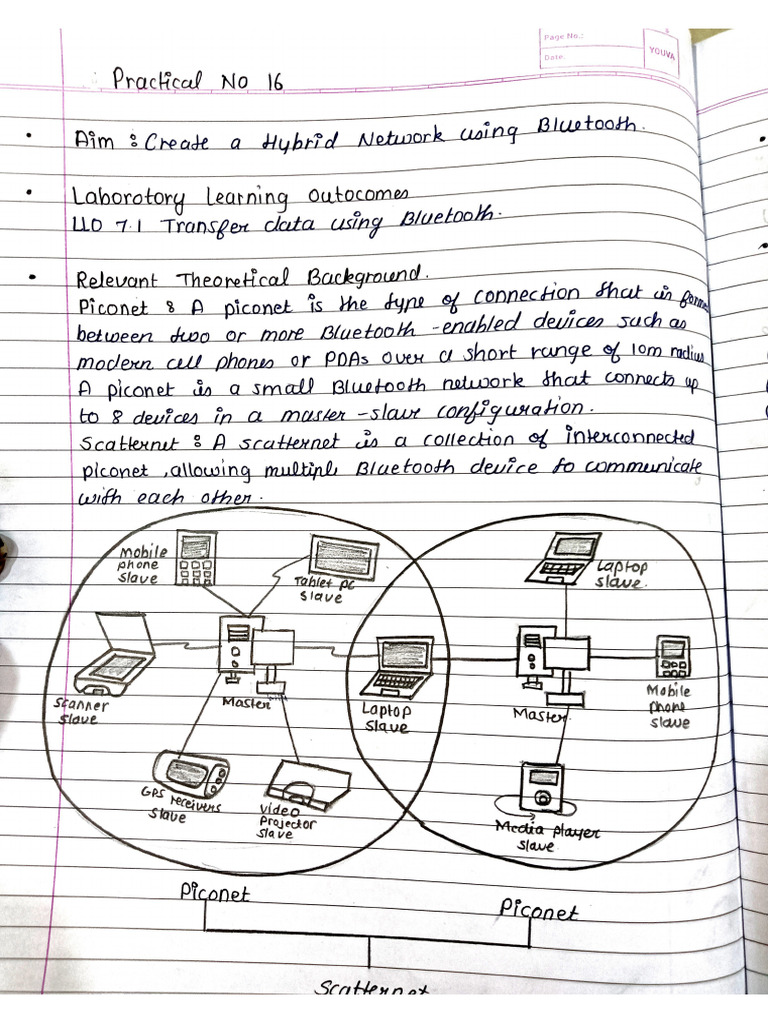 Page No.:
Date:
YOUVA
Practical No 16
• Aim : Create a Hybrid Network using Bluetooth.
• Laborotory Learning outocomes
LLO 7.1 Transfer data using Bluetooth.
• Relevant Theoretical Background.
Piconet : A piconet is the type of connection that is
between two or more Bluetooth -enabled devices such as
modern cell phones or PDAs over a short range of 10m radius
A piconet is a small Bluetooth network that connects up
to 8 devices in a master -slave configuration.
Scatternet : A scatternet is a collection of interconnected
piconet ,allowing multiple Bluetooth device to communicate
with each other.
Mobile
phone
slave
Tablet pc
slave
Laptop
slave.
Scanner
slave
Master
Laptop
slave
Master
Mobile
phone
slave
GPS receivers
slave
Video
Projector
slave
Media player
slave
Piconet
Piconet
Scatternet